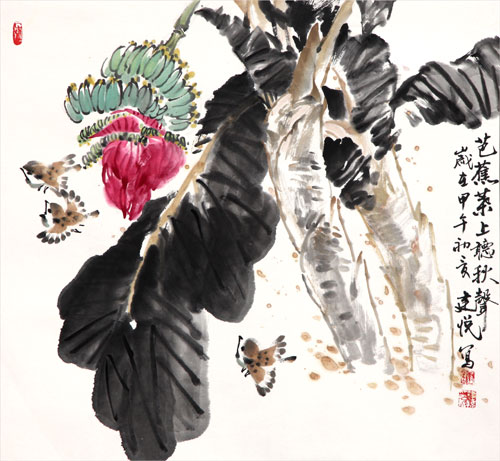 芭蕉葉上聽秋聲
歲在甲午初夏建悅寫